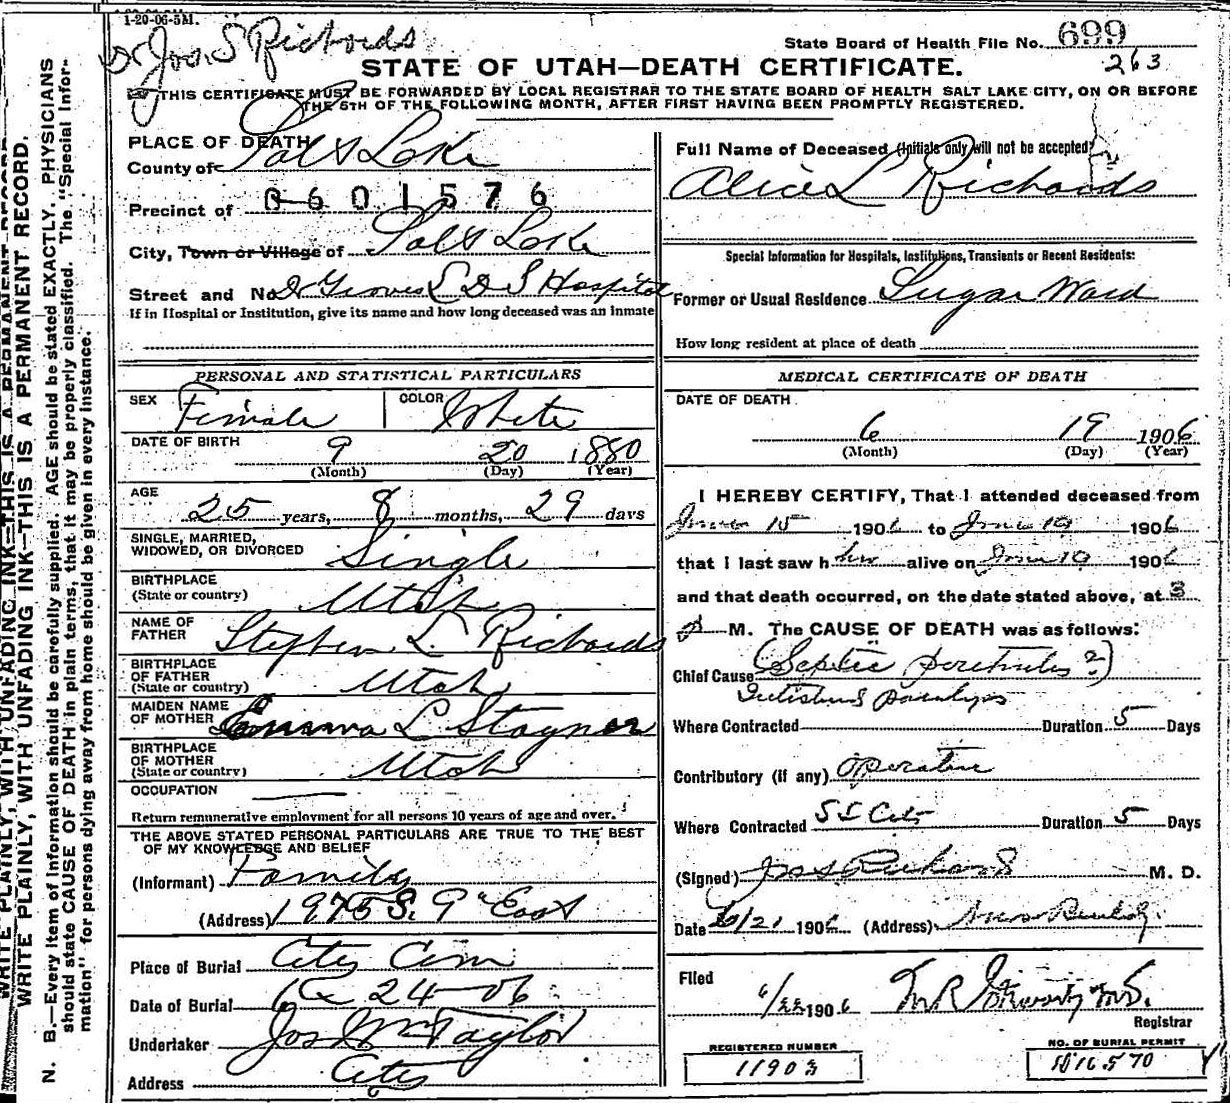 1-20-06-5M.
Dr Jos. S Richards
State Board of Health File No. 699
263
STATE OF UTAH—DEATH CERTIFICATE.
THIS CERTIFICATE MUST BE FORWARDED BY LOCAL REGISTRAR TO THE STATE BOARD OF HEALTH SALT LAKE CITY, ON OR BEFORE
THE 5TH OF THE FOLLOWING MONTH, AFTER FIRST HAVING BEEN PROMPTLY REGISTERED.
PLACE OF DEATH
County of Salt Lake
Precinct of 0601576
City, Town or Village of Salt Lake
Street and No. Groves L D S Hospital
If in Hospital or Institution, give its name and how long deceased was an inmate
Full Name of Deceased (Initials only will not be accepted)
Alice L Richards
Special Information for Hospitals, Institutions, Transients or Recent Residents:
Former or Usual Residence Sugar Ward
How long resident at place of death
PERSONAL AND STATISTICAL PARTICULARS
SEX Female COLOR White
DATE OF BIRTH 9 20 1880
(Month) (Day) (Year)
AGE 25 years, 8 months, 29 days
SINGLE, MARRIED,
WIDOWED, OR DIVORCED Single
BIRTHPLACE
(State or country) Utah
NAME OF
FATHER Stephen L Richards
BIRTHPLACE
OF FATHER
(State or country) Utah
MAIDEN NAME
OF MOTHER Emma L Stayner
BIRTHPLACE
OF MOTHER
(State or country) Utah
OCCUPATION
Return remunerative employment for all persons 10 years of age and over.
THE ABOVE STATED PERSONAL PARTICULARS ARE TRUE TO THE BEST
OF MY KNOWLEDGE AND BELIEF
(Informant) Family
(Address) 1975 S. 9th East
Place of Burial City Cem
Date of Burial 6 24-06
Undertaker Jos Wm Taylor
Address City
MEDICAL CERTIFICATE OF DEATH
DATE OF DEATH
6 19 1906
(Month) (Day) (Year)
I HEREBY CERTIFY, That I attended deceased from
June 15 1906 to June 19 1906
that I last saw her alive on June 19 1906
and that death occurred, on the date stated above, at 3
M. The CAUSE OF DEATH was as follows:
Chief Cause (Septic peritonitis ?)
Intestinal paralysis
Where Contracted Duration 5 Days
Contributory (if any) operation
Where Contracted S L City Duration 5 Days
(Signed) Jos S Richards M. D.
Date 6/21 1906 (Address)
Filed
6/22 1906 M.D.
Registrar
REGISTERED NUMBER
11903
NO. OF BURIAL PERMIT
16570
N. B.—Every item of information should be carefully supplied. AGE should be stated EXACTLY. PHYSICIANS
should state CAUSE OF DEATH in plain terms, that it may be properly classified. The "Special Infor-
mation" for persons dying away from home should be given in every instance.
WRITE PLAINLY, WITH UNFADING INK—THIS IS A PERMANENT RECORD.
WRITE PLAINLY, WITH UNFADING INK—THIS IS A PERMANENT RECORD.